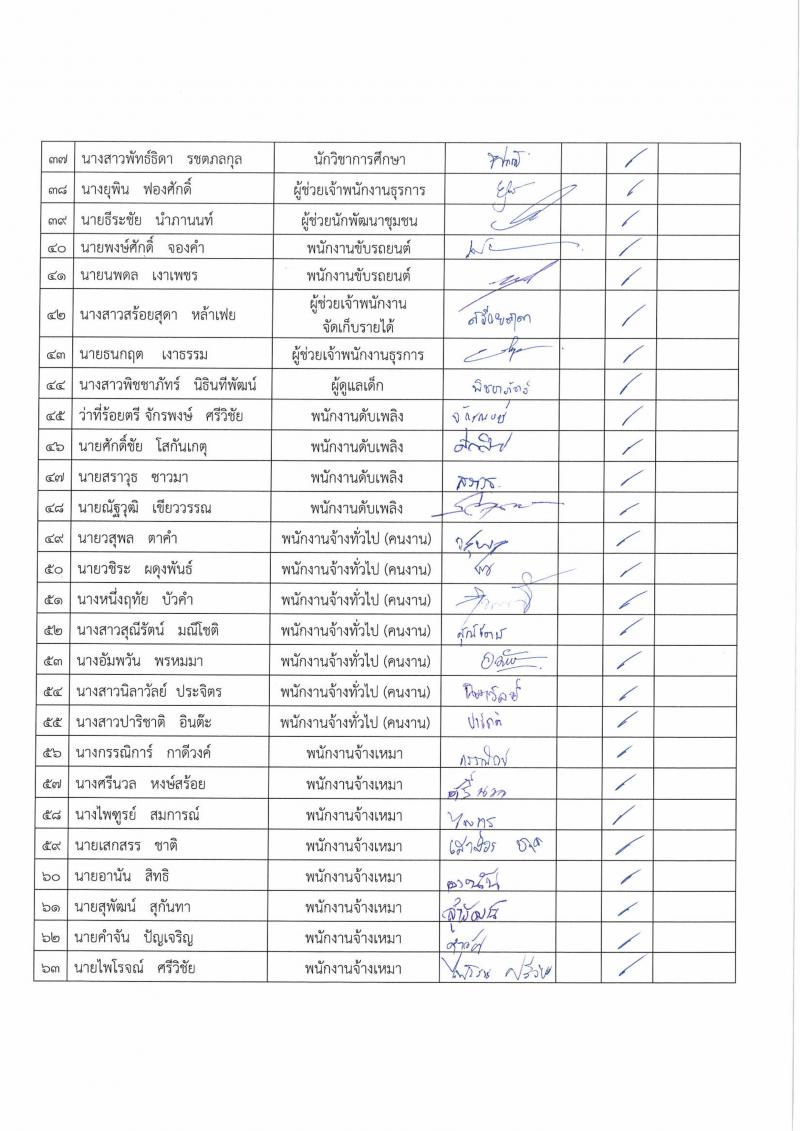 ๓๗ นางสาวพัทธ์ธิดา รชตภลกุล นักวิชาการศึกษา
๓๘ นางยุพิน ฟองศักดิ์ ผู้ช่วยเจ้าพนักงานธุรการ
๓๙ นายธีระชัย นำภานนท์ ผู้ช่วยนักพัฒนาชุมชน
๔๐ นายพงษ์ศักดิ์ จองคำ พนักงานขับรถยนต์
๔๑ นายนพดล เงาเพชร พนักงานขับรถยนต์
๔๒ นางสาวสร้อยสุดา หล้าเฟย ผู้ช่วยเจ้าพนักงาน
จัดเก็บรายได้ สร้อยสุดา
๔๓ นายธนกฤต เงาธรรม ผู้ช่วยเจ้าพนักงานธุรการ
๔๔ นางสาวพิชชาภัทร์ นิธินทีพัฒน์ ผู้ดูแลเด็ก พิชชาภัทร์
๔๕ ว่าที่ร้อยตรี จักรพงษ์ ศรีวิชัย พนักงานดับเพลิง จักรพงษ์
๔๖ นายศักดิ์ชัย โสกันเกตุ พนักงานดับเพลิง
๔๗ นายสราวุธ ซาวมา พนักงานดับเพลิง
๔๘ นายณัฐวุฒิ เขียววรรณ พนักงานดับเพลิง
๔๙ นายวสุพล ตาคำ พนักงานจ้างทั่วไป (คนงาน) วสุพล
๕๐ นายวชิระ ผดุงพันธ์ พนักงานจ้างทั่วไป (คนงาน)
๕๑ นางหนึ่งฤทัย บัวคำ พนักงานจ้างทั่วไป (คนงาน)
๕๒ นางสาวสุณีรัตน์ มณีโชติ พนักงานจ้างทั่วไป (คนงาน) สุณีรัตน์
๕๓ นางอัมพวัน พรหมมา พนักงานจ้างทั่วไป (คนงาน)
๕๔ นางสาวนิลาวัลย์ ประจิตร พนักงานจ้างทั่วไป (คนงาน) นิลาวัลย์
๕๕ นางสาวปาริชาติ อินต๊ะ พนักงานจ้างทั่วไป (คนงาน)
๕๖ นางกรรณิการ์ กาดีวงค์ พนักงานจ้างเหมา
๕๗ นางศรีนวล หงษ์สร้อย พนักงานจ้างเหมา ศรีนวล
๕๘ นางไพฑูรย์ สมการณ์ พนักงานจ้างเหมา
๕๙ นายเสกสรร ชาติ พนักงานจ้างเหมา
๖๐ นายอานัน สิทธิ พนักงานจ้างเหมา อานัน
๖๑ นายสุพัฒน์ สุกันทา พนักงานจ้างเหมา สุพัฒน์
๖๒ นายคำจัน ปัญเจริญ พนักงานจ้างเหมา
๖๓ นายไพโรจณ์ ศรีวิชัย พนักงานจ้างเหมา